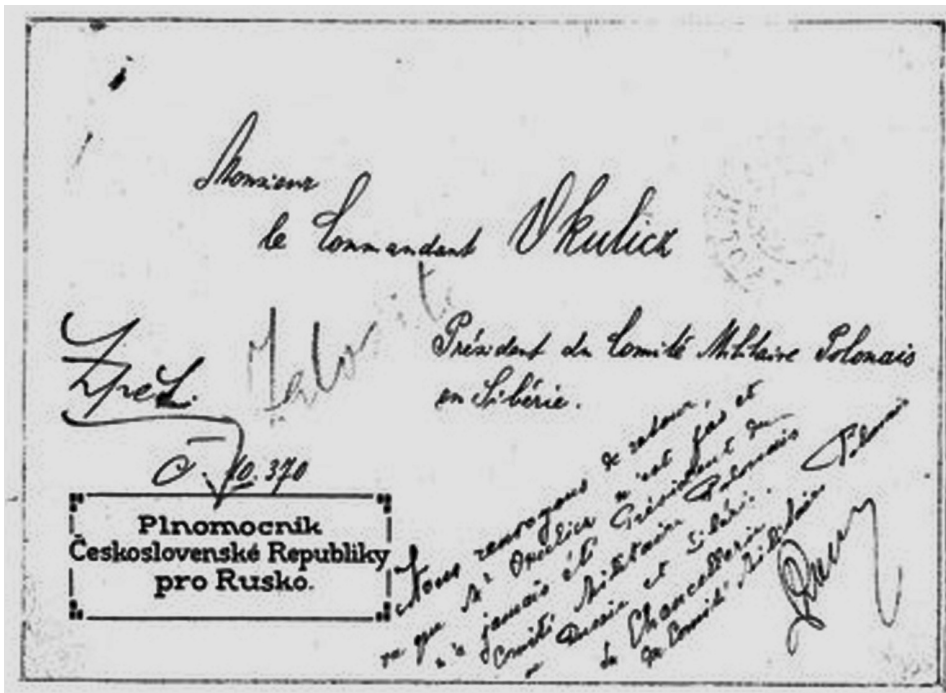 Monsieur
le Commandant Okulicz
Président du Comité Militaire Polonais
en Sibérie.
Zpět.
Č. 10.370
Plnomocník
Československé Republiky
pro Rusko.
Nous renvoyons de retour,
vu que Mr Okulicz n'est pas et
n'a jamais été Président du
Comité Militaire Polonais
en Russie et Sibérie.
la Chancellerie
du Comité Militaire Polonais